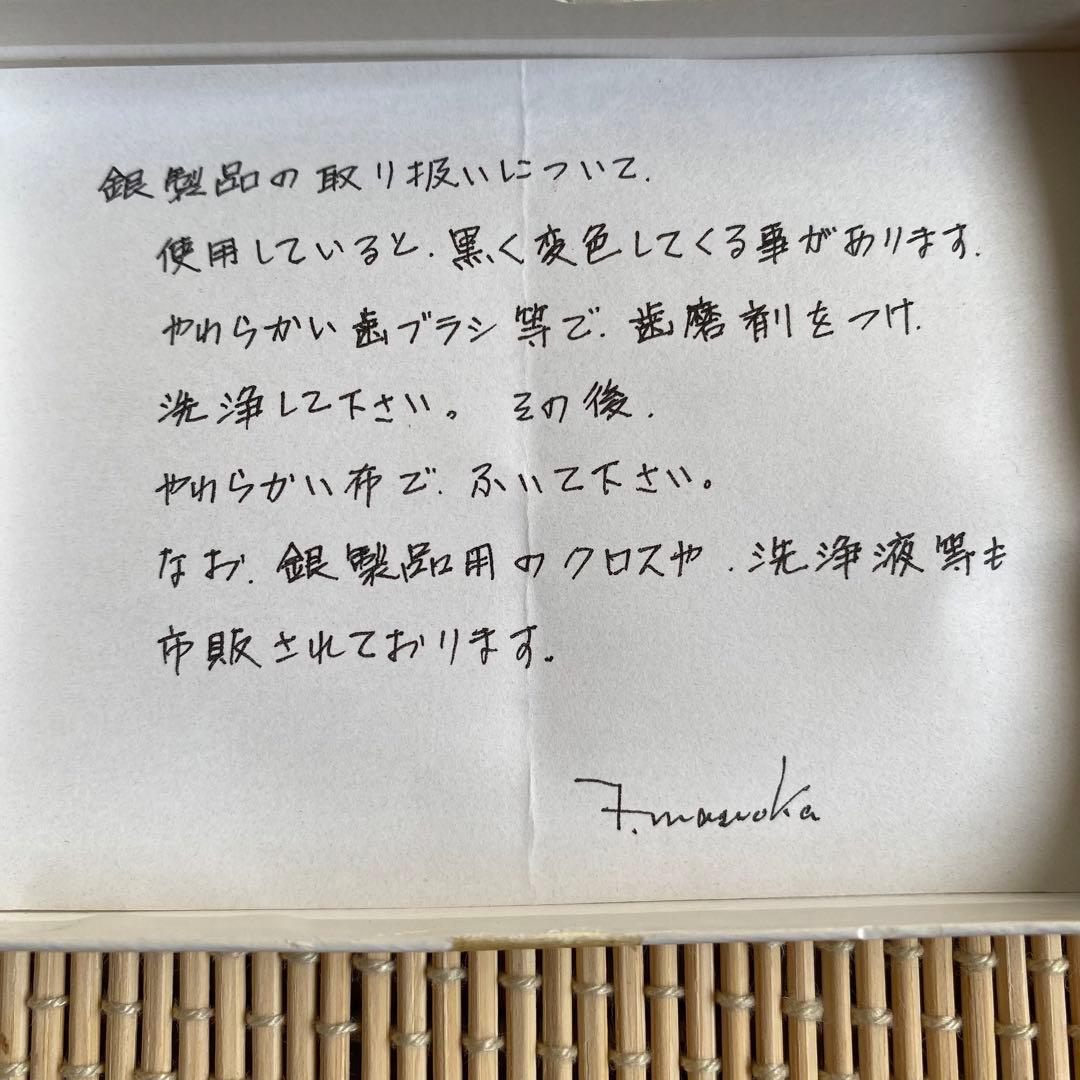 銀製品の取り扱いについて.
使用していると.黒く変色してくる事があります.
やわらかい歯ブラシ等で.歯磨剤をつけ.
洗浄して下さい。 その後.
やわらかい布で.ふいて下さい。
なお.銀製品用のクロスや.洗浄液等も
市販されております。